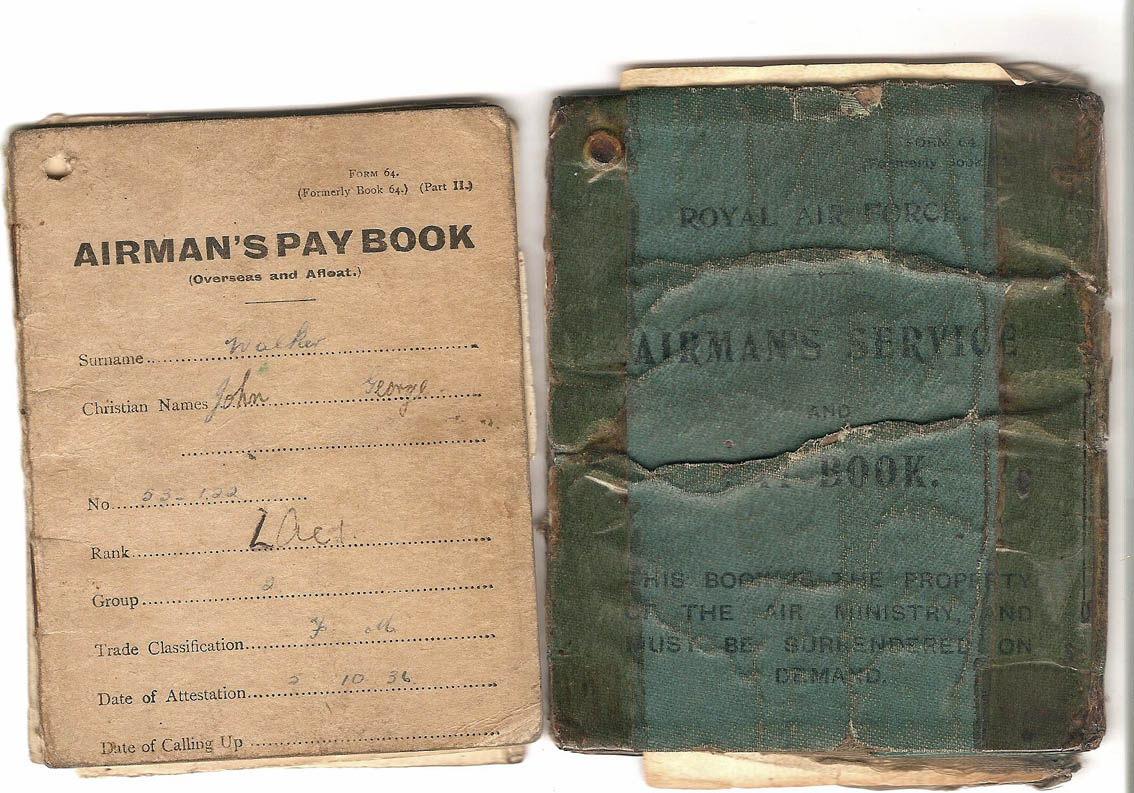 FORM 64.
(Formerly Book 64.) (Part II.)
AIRMAN'S PAY BOOK
(Overseas and Afloat.)
Surname Walker
Christian Names John George
No
Rank
Group 2
Trade Classification F. M
Date of Attestation 5 10 36
Date of Calling Up
FORM 64
(Formerly Book
ROYAL AIR FORCE.
AIRMAN'S SERVICE
AND
BOOK.
THIS BOOK IS THE PROPERTY
OF THE AIR MINISTRY, AND
MUST BE SURRENDERED ON
DEMAND.